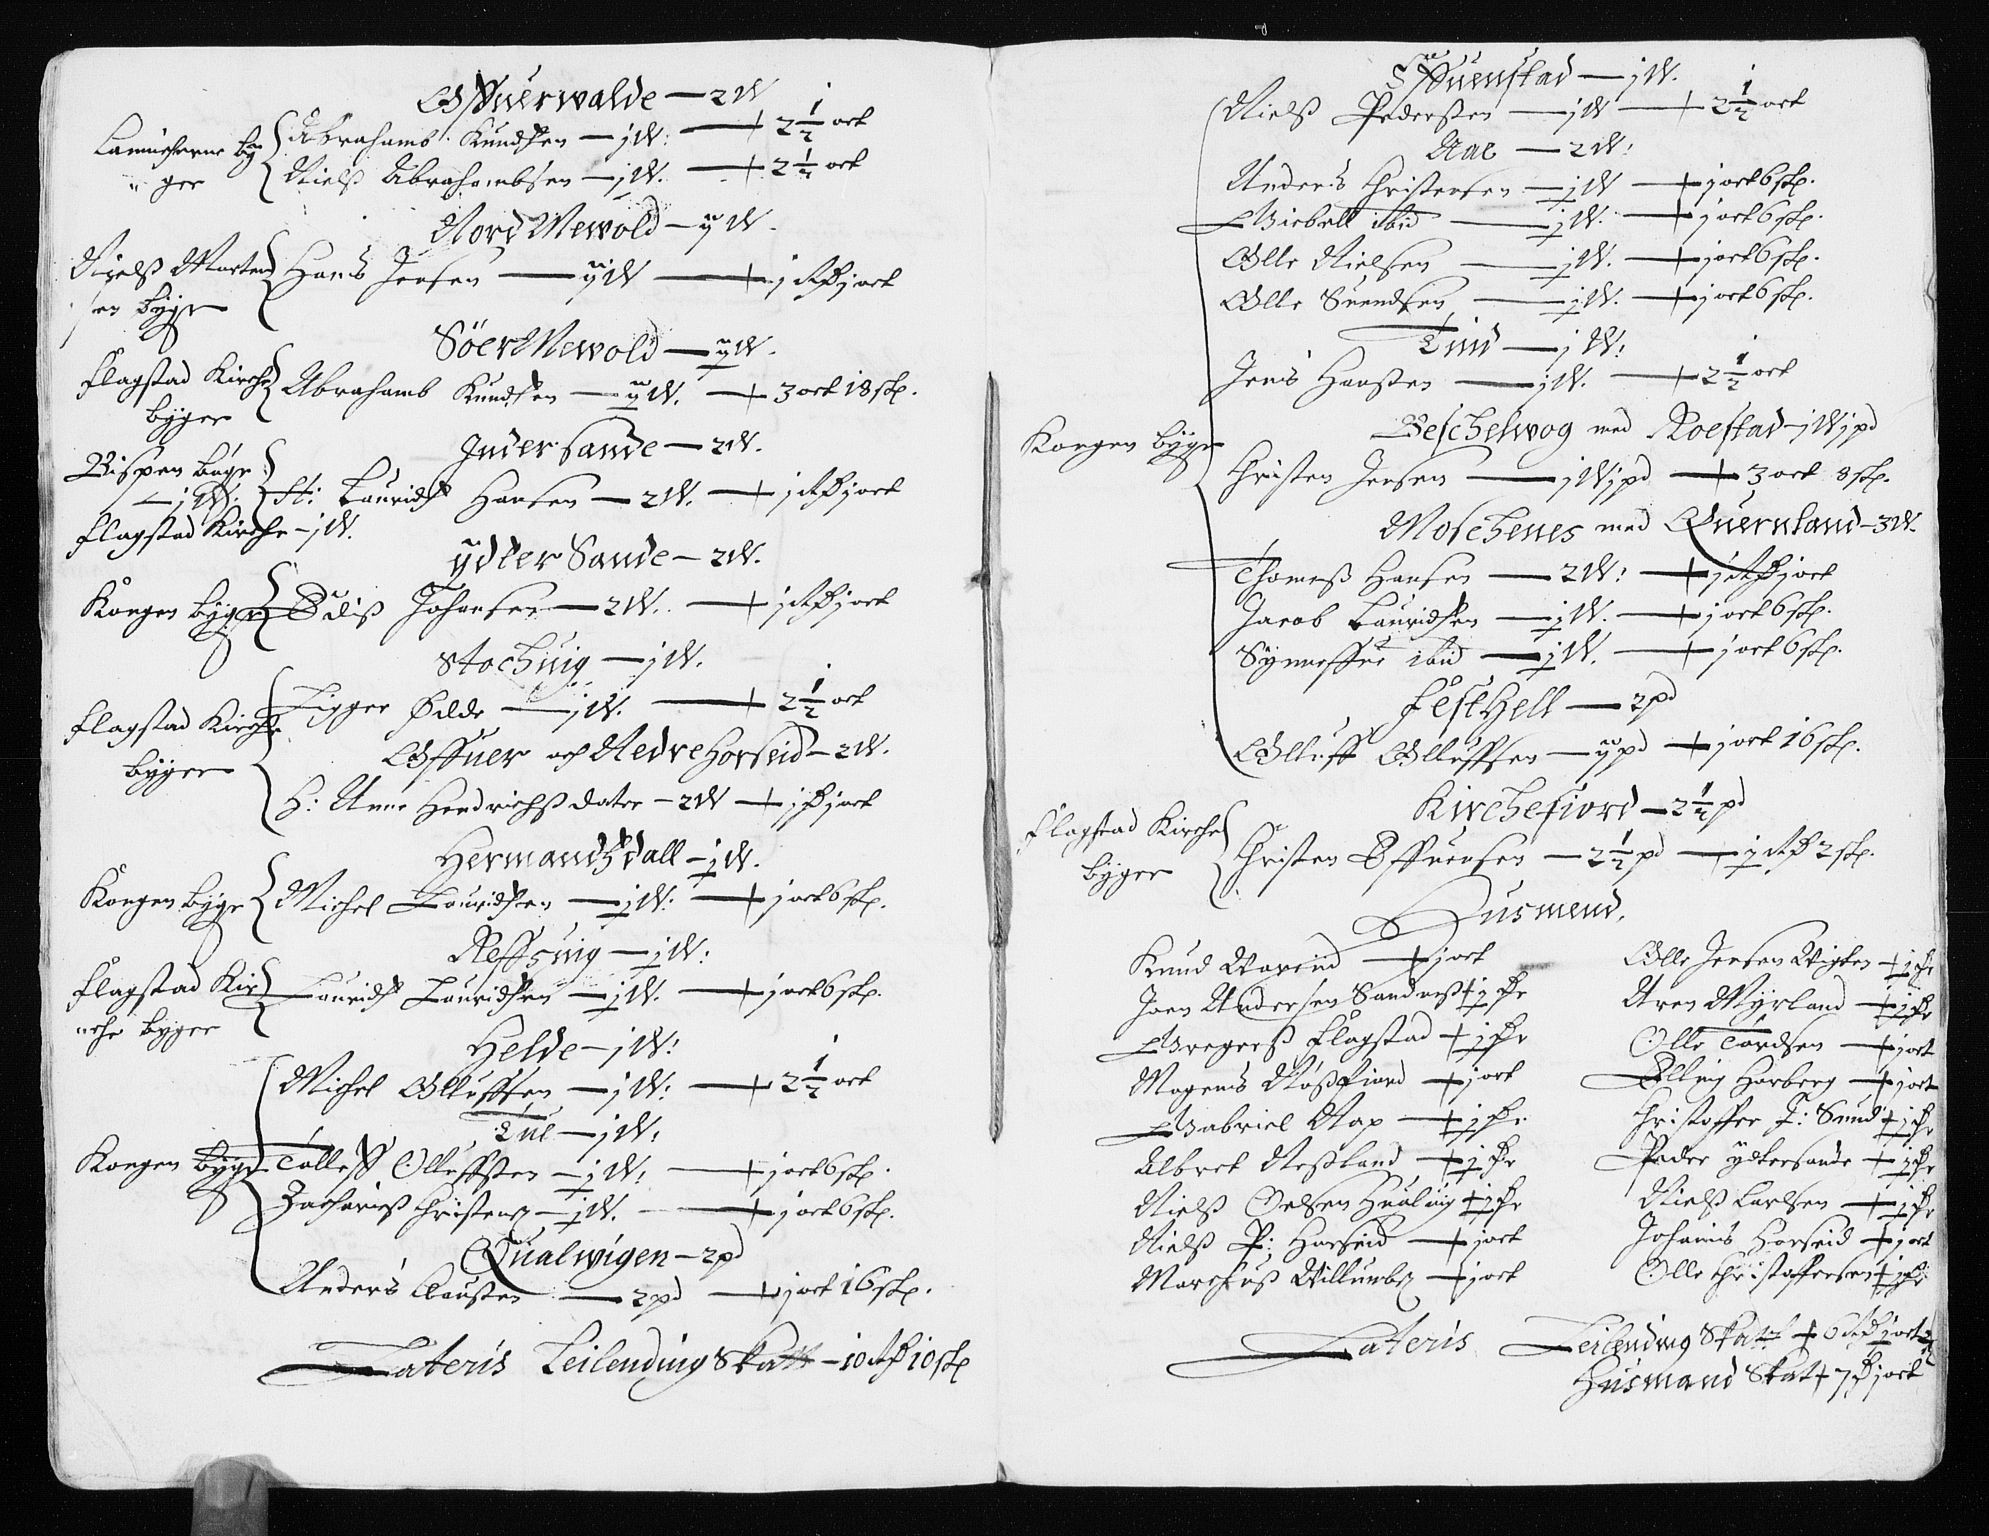 Offuerwalde — 2 W
Abrahamb Knudsen — j W: — 2 1/2 ort
by
ger
Nielß Abrahambsen — j W. — 2 1/2 ort
Nord Mewold — ij W.
Nielß Morten
sen byger
Hans Jensen — ij W — ort
Söer Mewold — ij W.
Flagstad Kirche
byger
Abrahamb Knudsen — ij W. — 3 ort 18 sk.
Inder Sande — 2 W.
Bispen bögr
— j W.
H: Lauridß Hansen — 2 W. — j Rd j ort
Flagstad Kirche — j W.
Ydter Sande — 2 W.
Kongen byger
Johansen — 2 W. — j Rd j ort
Stochuig — j W.
Flagstad Kirche
byger
Tigger Odde — j W. — 2 1/2 ort
Offuer och Nedre Horseid — 2 W.
H: Anne Hendrichß dater — 2 W — j Rd j ort
Hermandßdall — j W.
Kongen byger
Michel Lauridsen — j W: — j ort 6 sk.
Reffsuig — j W:
Flagstad Kir
che byger
Lauridß Lauridsen — j W. — j ort 6 sk.
Helde — j W:
Michel Olluffsen — j W: — 2 1/2 ort
Tue — j W:
Kongen byger
Tolleff Olluffsen — j W: — j ort 6 sk.
Zachariaß Christens — j W. — j ort 6 sk.
Qualwigen — 2 pd
Anders Clausen — 2 pd — j ort 16 sk.
Lateris Leilending Skatt — 10 Rd 10 sk
Effuenstad — j W.
Nielß Pedersen — j W — 2 1/2 ort
Aae — 2 W:
Anders Christensen — j W — j ort 6 sk.
Giebell ibid — j W. — j ort 6 sk.
Olle Nielsen — j W. — j ort 6 sk.
Olle Suendsen — j W. — j ort 6 sk.
Tind — j W:
Jens Hansen — j W. — 2 1/2 ort
Kongen byger
Beschelwog med Roestad — j W j pd
Christen Jensen — j W j pd — 3 ort 8 sk.
Moschenes med Quernland — 3 W.
Thomeß Hansen — 2 W: — j Rd j ort
Jacob Lauridsen — j W. — j ort 6 sk.
Synneffue ibid — j W. — j ort 6 sk.
Festhell — 2 pd
Olluff Olluffsen — ij pd — j ort 16 sk.
Kirchefiord — 2 1/2 pd
Flagstad Kirche
byger
Christen Effuensen — 2 1/2 pd — j Rd 2 sk.
Husmend.
Knud — j ort
Joen Andersen Sandneß
Gregerß Flagstad
Mogens Nußfiord — j ort
Gabriel Nap
Albret Neßland
Nielß Oelsen
Nielß P: Horseid — j ort
Marchuß Willumbs — j ort
Olle Jensen Wigten
Aren Myrland
Olle Tordsen — j ort
Elling Horberg — j ort
Christoffer T: Sund
Peder ydtersande
Nielß Larlsen
Johanis Horseid — j ort
Olle Christoffersen
Lateris Leilending Skatt — 6 Rd j ort
Husmand Skat — 7 Rd j ort